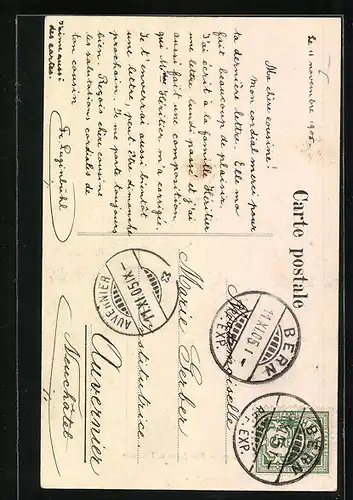 Carte postale
Le 11 novembre 1905.
Ma chère cousine!
Mon cordial merci pour
ta dernière lettre. Elle m'a
fait beaucoup de plaisir.
J'ai écrit à la famille Héritier
une lettre lundi passé et j'ai
aussi fait une composition
qui Mme Héritier m'a corrigée.
Je t'enverrai aussi bientôt
une lettre, peut être dimanche
prochain. Je me porte toujours
bien. Reçois chère cousine
les salutations cordiales de
ton cousin
Fr. Luginbühl
J'aime aussi
des cartes.
Mademoiselle
Marie Gerber
Institutrice
Auvernier
Neuchâtel
BERN
11.XI.05
EXP.
AUVERNIER
11.XI.05.IX
BERN
EXP.
5